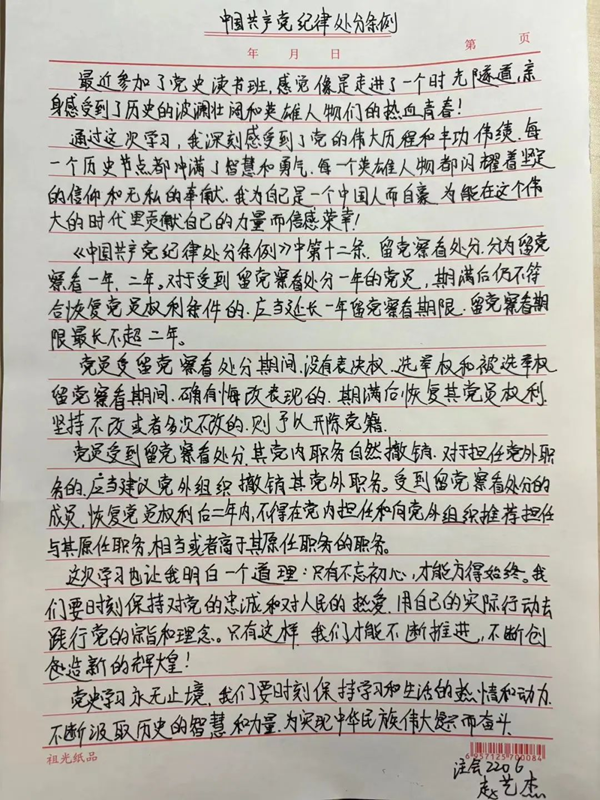 中国共产党纪律处分条例
年 月 日
第 页
最近参加了党史读书班,感觉像是走进了一个时光隧道,亲
身感受到了历史的波澜壮阔和英雄人物们的热血青春!
通过这次学习,我深刻感受到了党的伟大历程和丰功伟绩.每
一个历史节点都冲满了智慧和勇气.每一个英雄人物都闪耀着坚定
的信仰和无私的奉献.我为自己是一个中国人而自豪.为能在这个伟
大的时代里贡献自己的力量而倍感荣幸!
《中国共产党纪律处分条例》中第十二条.留党察看处分.分为留党
察看一年,二年。对于受到留党察看处分一年的党员,期满后仍不符
合恢复党员权利条件的.应当延长一年留党察看期限.留党察看期
限最长不超二年。
党员受留党察看处分期间.没有表决权.选举权和被选举权
留党察看期间.确有悔改表现的.期满后恢复其党员权利.
坚持不改或者多次不改的.则予以开除党籍.
党员受到留党察看处分.其党内职务自然撤销.对于担任党外职
务的.应当建议党外组织撤销其党外职务。受到留党察看处分的
成员,恢复党员权利后二年内,不得在党内担任和向党外组织推荐担任
与其原任职务,相当或者高于其原任职务的职务。
这次学习也让我明白一个道理:只有不忘初心,才能方得始终。我
们要时刻保持对党的忠诚和对人民的热爱.用自己的实际行动去
践行党的宗旨和理念。只有这样.我们才能不断推进,不断创
造新的辉煌!
党史学习永无止境.我们要时刻保持学习和生活的热情和动力.
不断汲取历史的智慧和力量.为实现中华民族伟大而奋斗.
祖光纸品
6957125700084
注会2206
赵艺杰